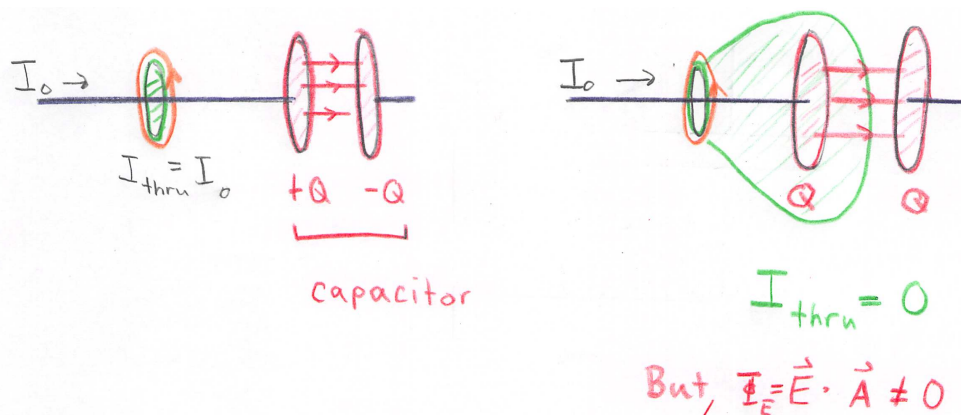 I₀ →
I_thru = I₀
+Q -Q
capacitor
I₀ →
Q Q
I_thru = 0
But, Φ_E = E⃗ · A⃗ ≠ 0